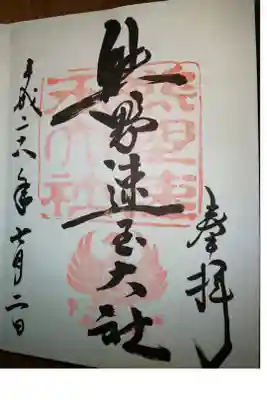 奉拝
熊野速玉大社
平成二六年七月二日